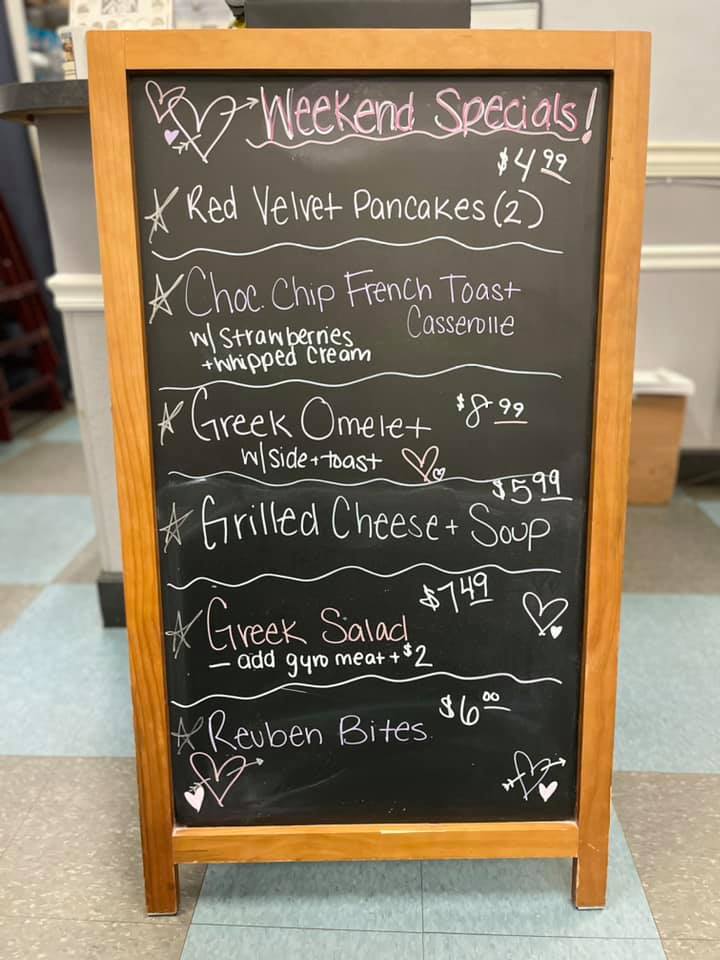 Weekend Specials!
$4.99
Red Velvet Pancakes (2)
Choc. Chip French Toast
Casserolle
w/ strawberries
+ whipped cream
Greek Omelet $8.99
w/ side + toast
$5.99
Grilled Cheese + Soup
$7.49
Greek Salad
— add gyro meat + $2
$6.00
Reuben Bites